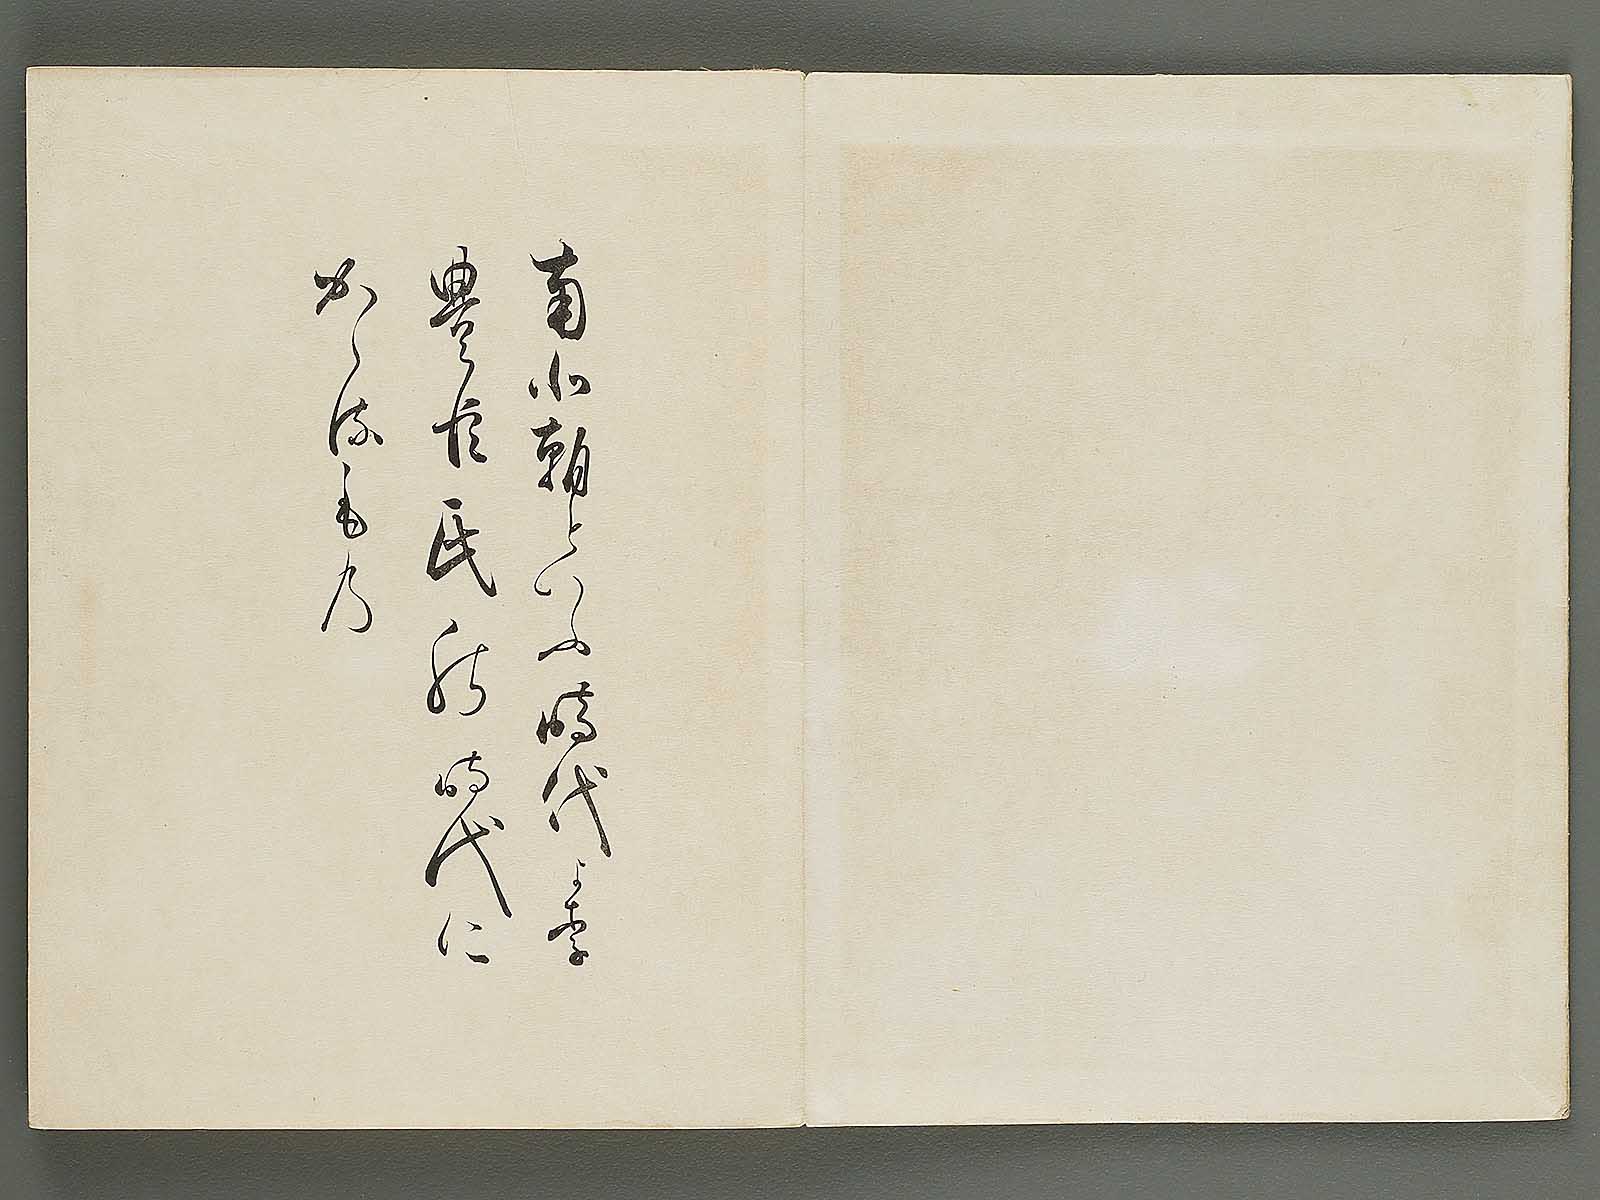 南北朝といふ時代より
豊臣氏の時代に
かゝるもの